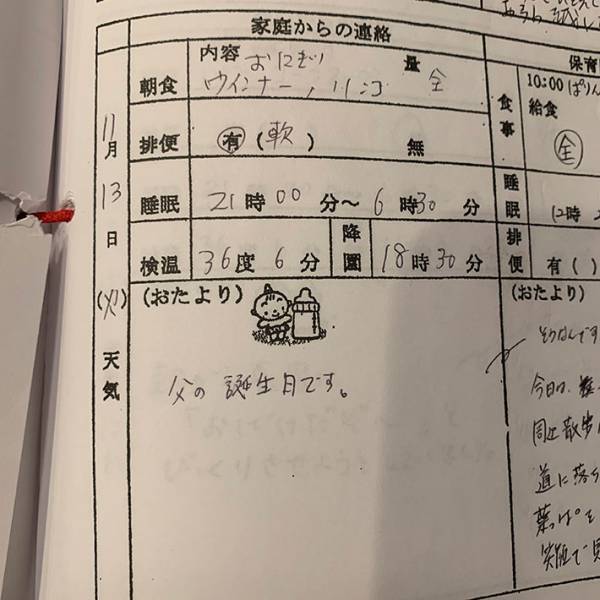 家庭からの連絡
保育
11月13日(火)
天気
朝食
内容 おにぎり
ウインナー、リンゴ
量 全
食事
10:00 ぱりん
給食
全
排便 有(軟) 無
睡眠 21時00分〜6時30分
睡眠
12時
検温 36度6分
降園 18時30分
排便 有( )
(おたより)
父の誕生日です。
(おたより)
そうなんです
今日は、
周辺散歩
道に落
葉っぱを
笑顔で